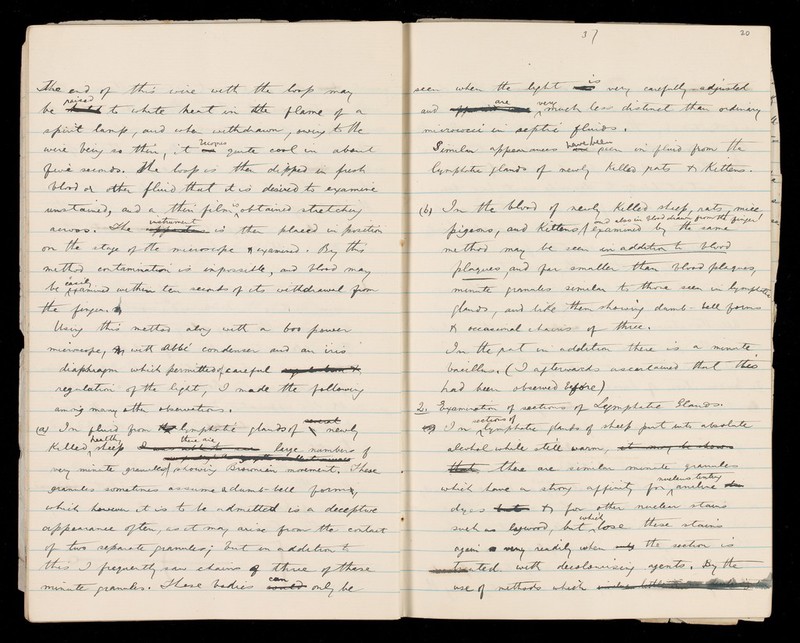 The end of this wire with the loop may
be raised to white heat in the flame of a
spirit lamp, and when withdrawn, owing to the
wire being so thin, it becomes quite cool in about
five seconds. The loop is then dipped in fresh
blood or other fluid that it is desired to examine
unstained, and a thin film is obtained stretching
across. The instrument is then placed in position
on the stage of the microscope & examined. By this
method contamination is impossible, and blood may
be easily examined within ten seconds of its withdrawal from
the finger.
Using this method along with a 600 power
microscope, with Abbé condenser and an iris
diaphragm which permitted of careful
regulation of the light, I made the following
among many other observations.
(a) In fluid from lymphatic glands of several newly
killed healthy sheep there are large numbers of
very minute granules showing Brownian movement. These
granules sometimes assume a dumb-bell form,
which however it is to be admitted is a deceptive
appearance often, as it may arise from the contact
of two separate granules; but in addition to
this I frequently saw chains of three of these
minute granules. These bodies can only be
37
20
seen when the light is very carefully adjusted
and are very much less distinct than ordinary
micrococci in septic fluids.
Similar appearances have been seen in fluid from the
lymphatic glands of newly killed rats & kittens.
(b) In the blood of newly killed sheep, rats, mice
pigeons, and kittens, and also in blood drawn from the finger, examined by the same
method may be seen in addition to blood
plaques and far smaller than blood plaques,
minute granules similar to those seen in lymphatic
glands, and like them showing dumb-bell forms
& occasional chains of three.
In the rat in addition there is a minute
bacillus. (I afterwards ascertained that this
had been observed before)
2. Examination of sections of Lymphatic Glands.
In sections of lymphatic glands of sheep put into absolute
alcohol while still warm,
there are similar minute granules
which have a strong affinity for nucleus tinting aniline
dyes & for other nuclear stains
such as logwood, but which lose these stains
again very readily when the section is
treated with decolourising agents. By the
use of methods which